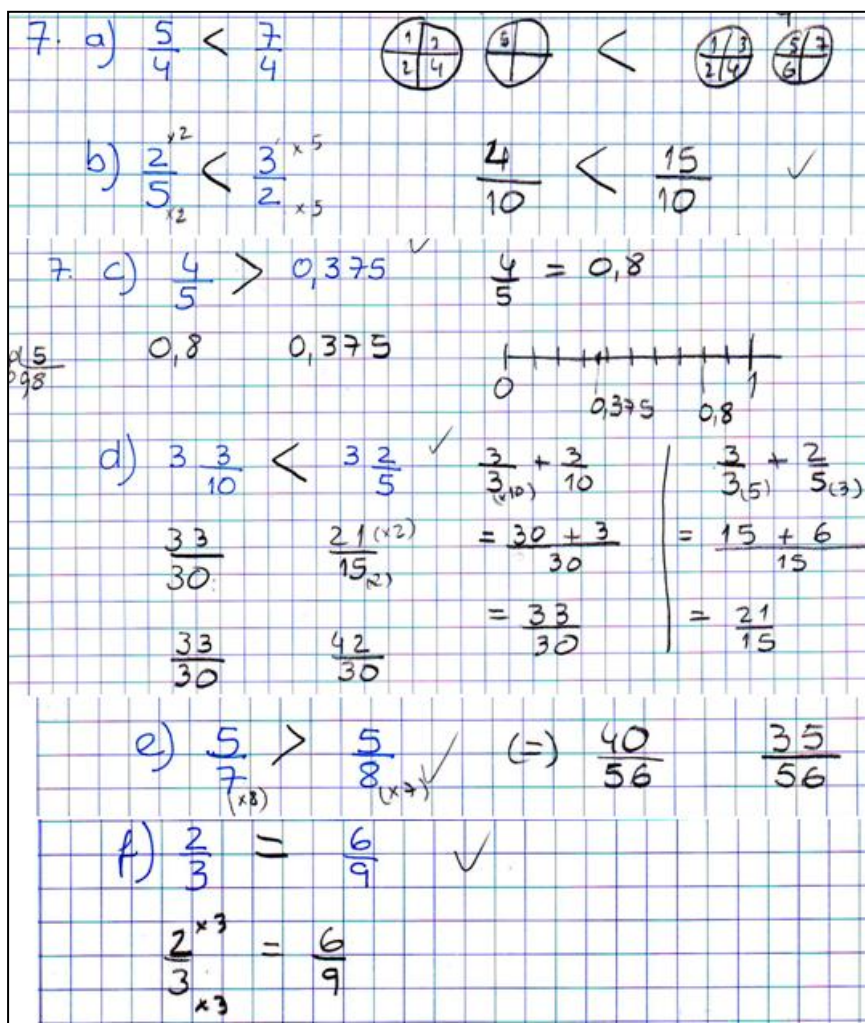 7. a) 5/4 < 7/4   1 3 2 4   5   <   1 3 2 4   5 7 6
b) 2/5 ×2 ×2 < 3/2 ×5 ×5   4/10 < 15/10 ✓
7. c) 4/5 > 0,375 ✓   4/5 = 0,8
0,8   0,375   0   0,375   0,8   1
d) 3 3/10 < 3 2/5 ✓   3/3 (×10) + 3/10   3/3 (5) + 2/5 (3)
33/30   21/15 (×2) (2)   = 30 + 3/30   = 15 + 6/15
33/30   42/30   = 33/30   = 21/15
e) 5/7 (×8) > 5/8 (×7) ✓ (=) 40/56   35/56
f) 2/3 = 6/9 ✓
2/3 ×3 ×3 = 6/9